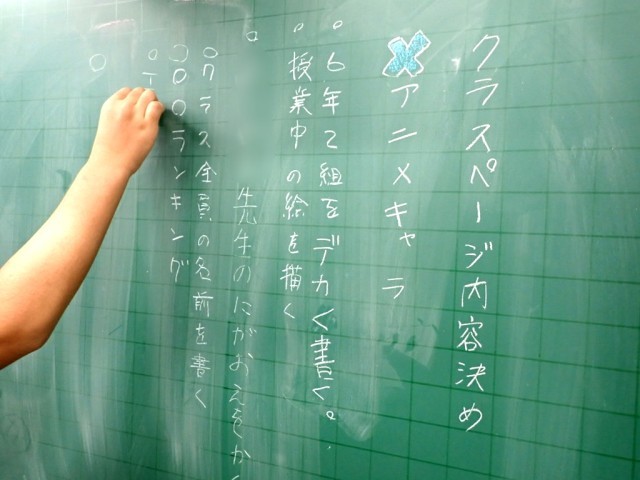 クラスページ内容決め
×アニメキャラ
。6年2組をデカく書く。
。授業中の絵を描く
。先生のにがおえをかく
。クラス全員の名前を書く
。○○ランキング
。T
。